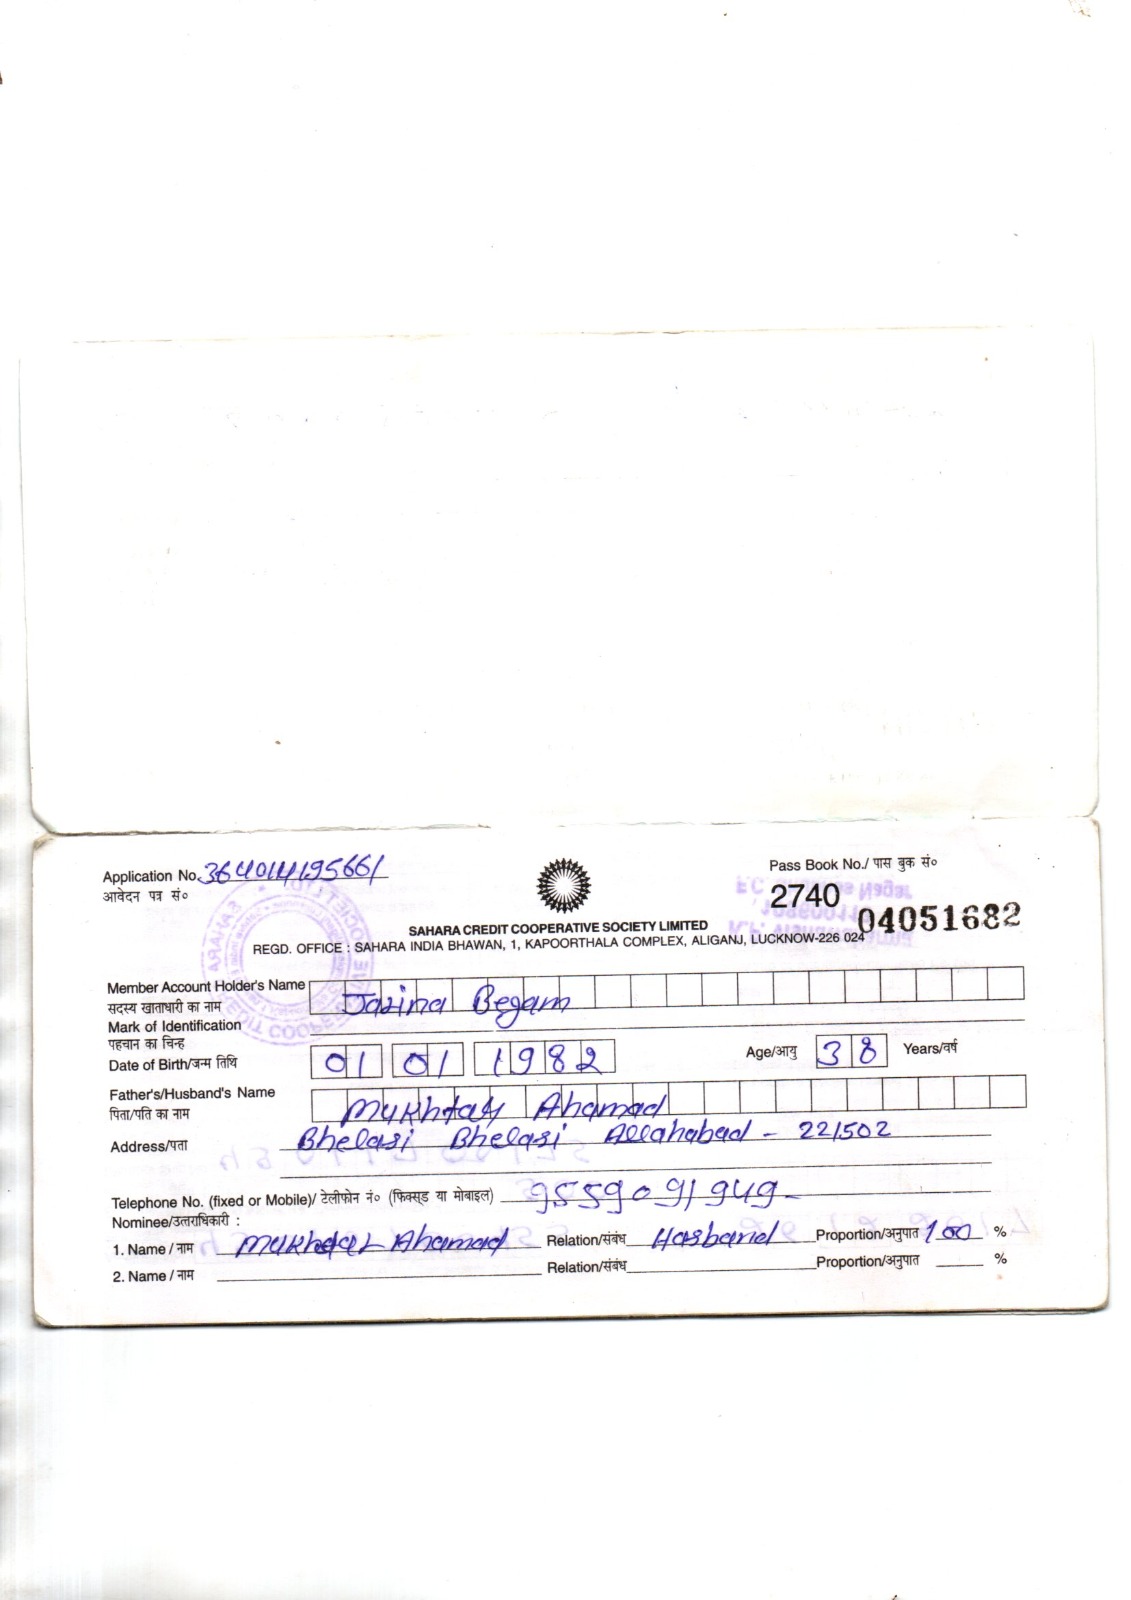 Application No. 364014195661
आवेदन पत्र सं०
Pass Book No./ पास बुक सं०
2740 04051682
SAHARA CREDIT COOPERATIVE SOCIETY LIMITED
REGD. OFFICE : SAHARA INDIA BHAWAN, 1, KAPOORTHALA COMPLEX, ALIGANJ, LUCKNOW-226 024
Member Account Holder's Name Jarina Begam
सदस्य खाताधारी का नाम
Mark of Identification
पहचान का चिन्ह
Date of Birth/जन्म तिथि 01 01 1982 Age/आयु 38 Years/वर्ष
Father's/Husband's Name
पिता/पति का नाम Mukhtar Ahamad
Address/पता Bhelasi Bhelasi Allahabad - 221502
Telephone No. (fixed or Mobile)/ टेलीफोन नं० (फिक्सड या मोबाइल) 9559091949
Nominee/उत्तराधिकारी :
1. Name / नाम Mukhtar Ahamad Relation/संबंध Hasband Proportion/अनुपात 100 %
2. Name / नाम Relation/संबंध Proportion/अनुपात %